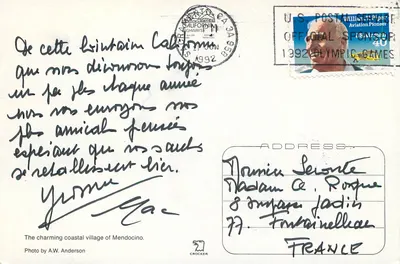 De cette lointaine Californie
que nous découvrons toujours
un peu plus chaque année
nous vous envoyons nos
plus amicales pensées
espérant que vos santés
se rétablissent bien.
Yvonne
Mac
The charming coastal village of Mendocino.
Photo by A.W. Anderson
CROCKER
SACRAMENTO, CA 958
1992
U.S. POSTAL SERVICE
OFFICIAL SPONSOR
1992 OLYMPIC GAMES
Aviation Pioneer
40
ADDRESS
Monsieur
Madame
8
77. Fontainebleau
FRANCE